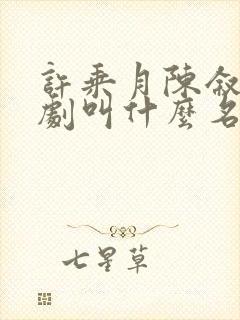 許乘月陳敘
劇叫什麼名
七星草